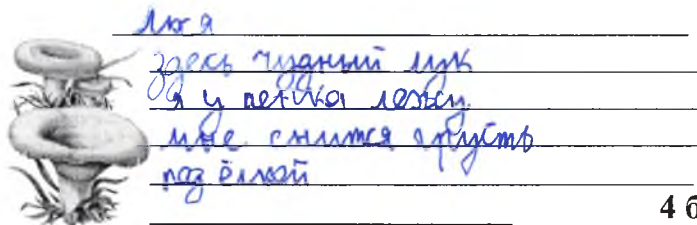 я
здесь чудный лук
я у пенька лежу
мне снится грусть
под ёлкой
4 б